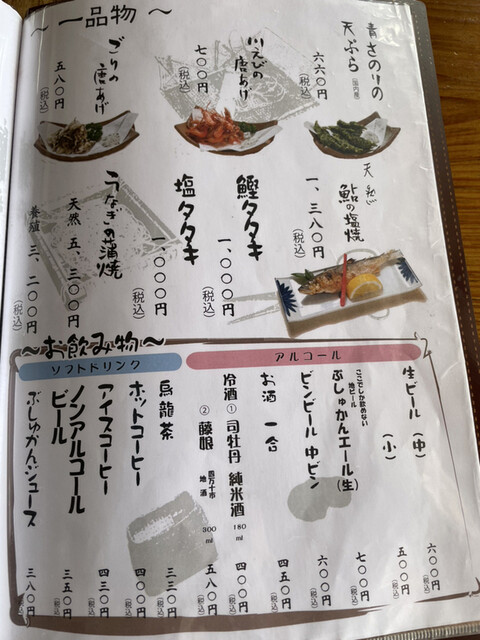 ～一品物～
青さのりの
天ぷら(国内産)
六六〇円
(税込)
川えびの
唐あげ
七〇〇円
(税込)
ごりの
唐あげ
五八〇円
(税込)
天然
鮎の塩焼
一、三八〇円
(税込)
鰹タタキ
一、〇〇〇円
(税込)
塩タタキ
一、〇〇〇円
(税込)
うなぎの蒲焼
天然 五、三〇〇円
(税込)
養殖 三、二〇〇円
(税込)
～お飲み物～
アルコール
生ビール (中)
六〇〇円
(税込)
(小)
五〇〇円
(税込)
ここでしか飲めない
地ビール
ぶしゅかんエール(生)
七〇〇円
(税込)
ビンビール 中ビン
六〇〇円
(税込)
お酒 一合
四五〇円
(税込)
冷酒 ① 司牡丹 純米酒 180ml
四〇〇円
(税込)
② 藤娘 四万十市 地酒 300ml
五八〇円
(税込)
ソフトドリンク
烏龍茶
三三〇円
(税込)
ホットコーヒー
四〇〇円
(税込)
アイスコーヒー
四三〇円
(税込)
ノンアルコール
ビール
三五〇円
(税込)
ぶしゅかんジュース
三八〇円
(税込)